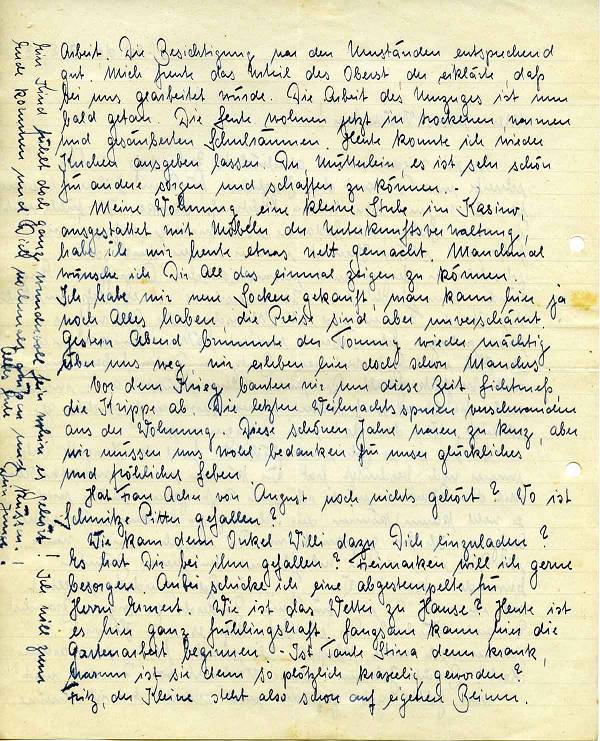 Arbeit. Die Besichtigung war den Umständen entsprechend
gut. Mich freute das Urteil des Oberst, der erklärte, daß
bei uns gearbeitet würde. Die Arbeit des Umzuges ist nun
bald getan. Die Leute wohnen jetzt in trockenen warmen
und gesäuberten Schulräumen. Heute konnte ich wieder
Kuchen ausgeben lassen. Du, Mütterlein, es ist sehr schön
für andere sorgen und schaffen zu können. -
Meine Wohnung, eine kleine Stube im Kasino,
ausgestattet mit Möbeln der Unterkunftsverwaltung,
habe ich mir heute etwas nett gemacht. Manchmal
wünsche ich Dir All das einmal zeigen zu können.
Ich habe mir neue Socken gekauft, man kann hier ja
noch Alles haben, die Preise sind aber unverschämt.
Gestern Abend brummte der Tommy wieder mächtig
über uns weg, wir erleben hier doch schon Manches.
Vor dem Krieg bauten wir um diese Zeit, Lichtmeß,
die Krippe ab. Die letzten Weihnachtsspuren verschwanden
aus der Wohnung. Diese schönen Jahre waren zu kurz, aber
wir müssen uns wohl bedanken für unser glückliches
und fröhliches Leben.
Hat Frau Acher von August noch nichts gehört? Wo ist
Schmitze Pitter gefallen?
Wie kam denn Onkel Willi dazu Dich einzuladen?
Es hat Dir bei ihm gefallen? Freimarken will ich gerne
besorgen. Anbei schicke ich eine abgestempelte für
Herrn Ernert. Wie ist das Wetter zu Hause? Heute ist
es hier ganz frühlingshaft. Langsam kann hier die
Gartenarbeit beginnen. Ist Tante Stina denn krank,
warum ist sie denn so plötzlich kraselig geworden?
Fritz, der Kleine steht also schon auf eigenen Beinen.
Ein Kind fühlt doch ganz wundervoll fein wohin es gehört! Ich will zum
Ende kommen und Dich grüßen und küssen!
Alles Gute
Dein